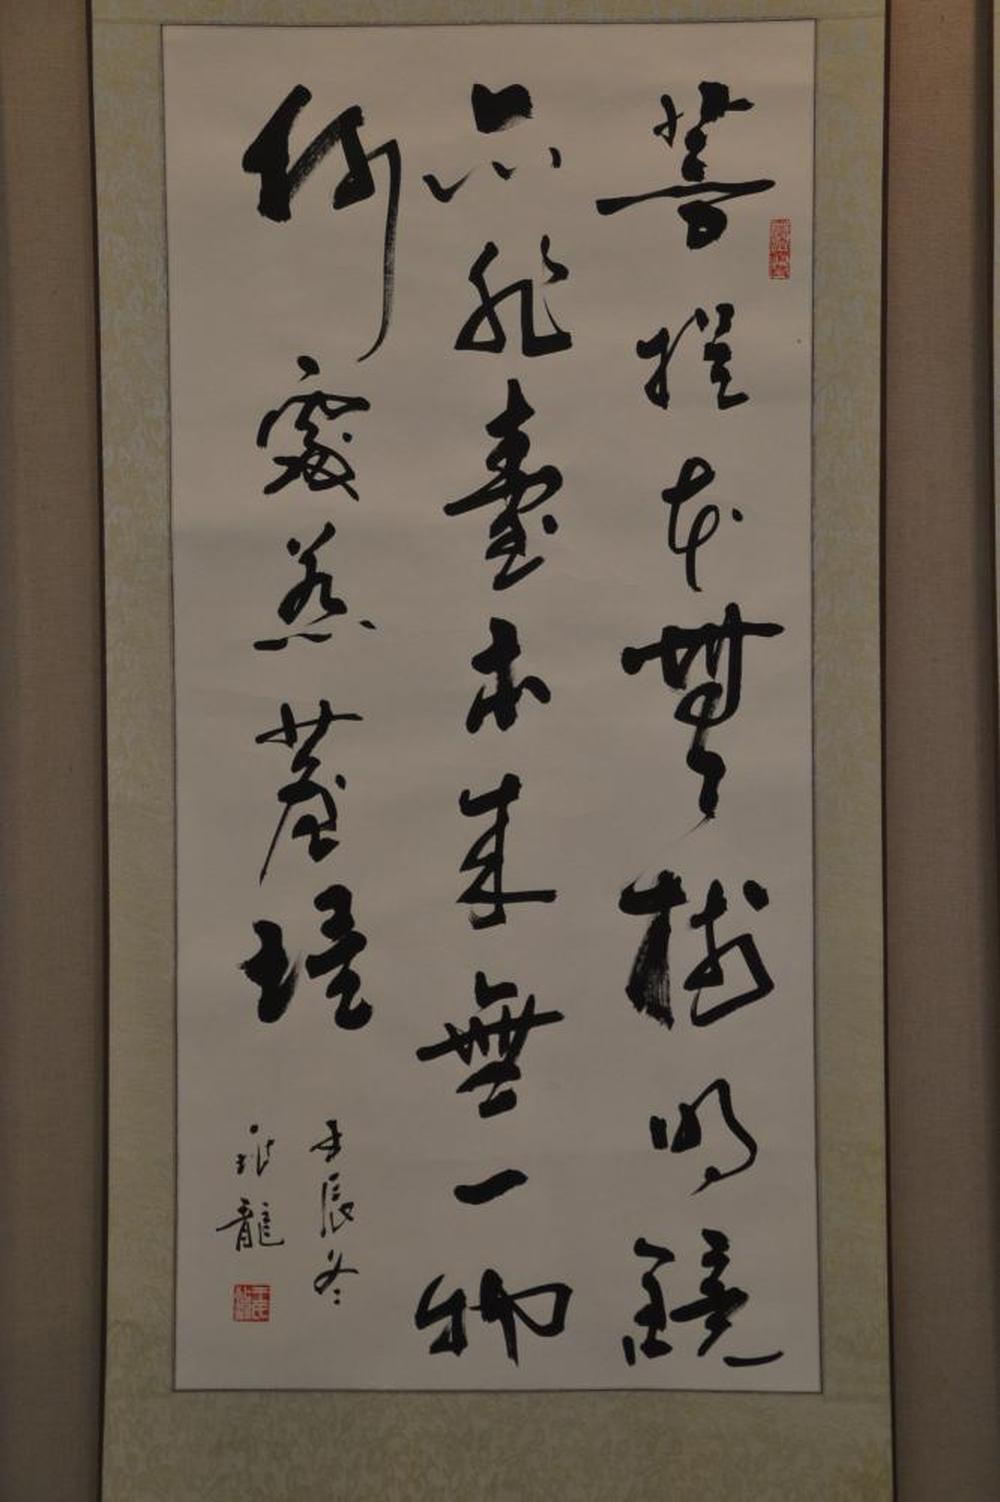 菩提本無樹明鏡
亦非臺本來無一物
何處惹塵埃
壬辰冬
龍